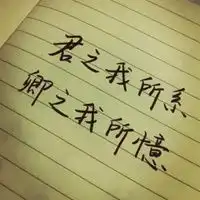 君之我所系
卿之我所憶